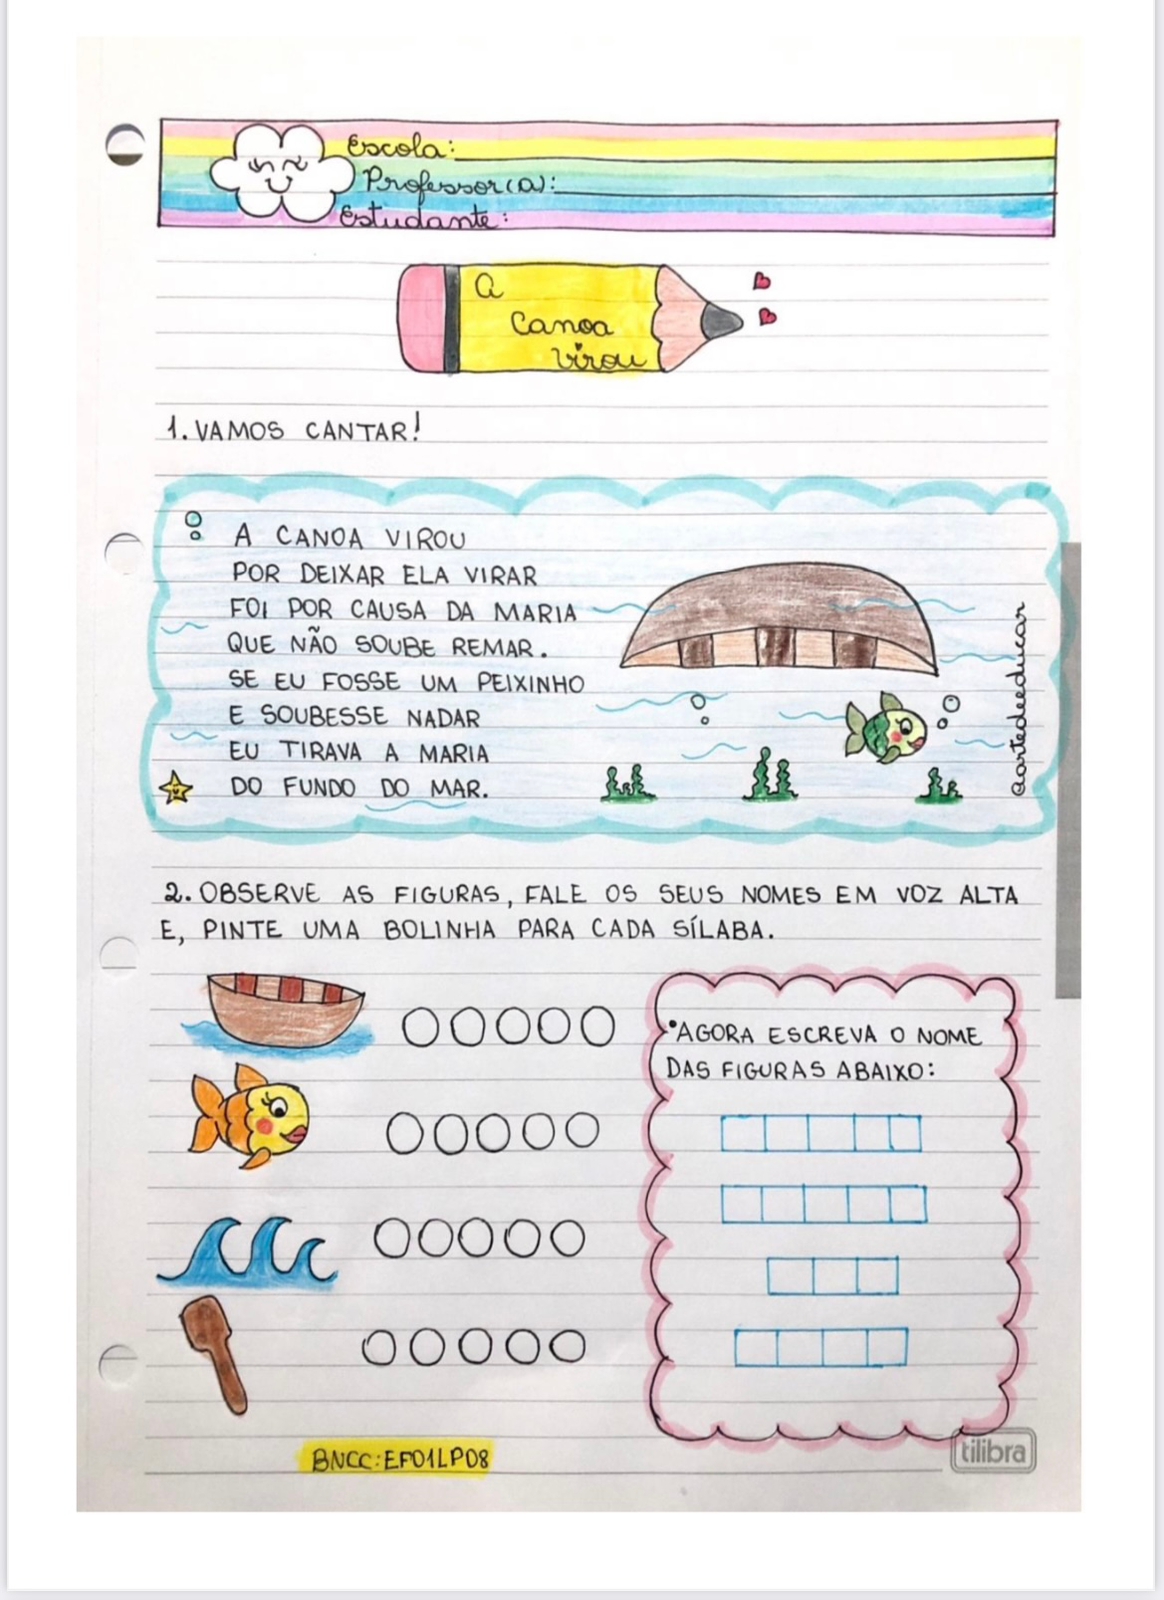 Escola:
Professor(a):
Estudante:
A
Canoa
Virou
1. VAMOS CANTAR!
A CANOA VIROU
POR DEIXAR ELA VIRAR
FOI POR CAUSA DA MARIA
QUE NÃO SOUBE REMAR.
SE EU FOSSE UM PEIXINHO
E SOUBESSE NADAR
EU TIRAVA A MARIA
DO FUNDO DO MAR.
@artedeeducar
2. OBSERVE AS FIGURAS, FALE OS SEUS NOMES EM VOZ ALTA
E, PINTE UMA BOLINHA PARA CADA SÍLABA.
•AGORA ESCREVA O NOME
DAS FIGURAS ABAIXO:
BNCC:EF01LP08
tilibra